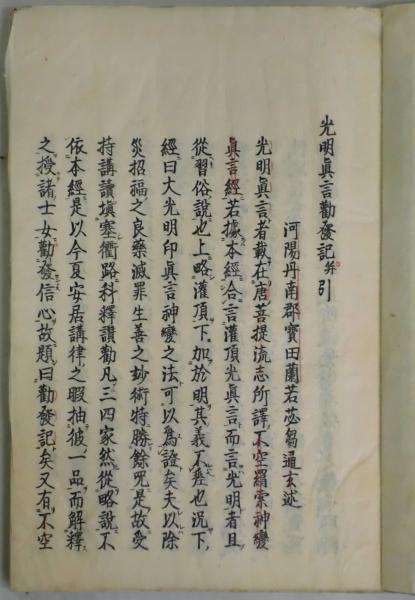 光明眞言勸發記并引
河陽丹南郡寳田蘭若苾蒭通玄述
光明眞言者載在唐菩提流志所譯不空羂索神變
眞言經若據本經合言灌頂光眞言而言光明者且
從習俗說也上略灌頂下加於明其義不差也况下
經曰大光明印眞言神變之法可以爲證矣夫以除
災招福之良藥滅罪生善之妙術特勝餘呪是故受
持講讀塡塞衢路科釋讃勸凡三四家然從略說不
依本經是以今夏安居講律之暇抽彼一品而解釋
之授諸士女勸發信心故題曰勸發記矣又有不空